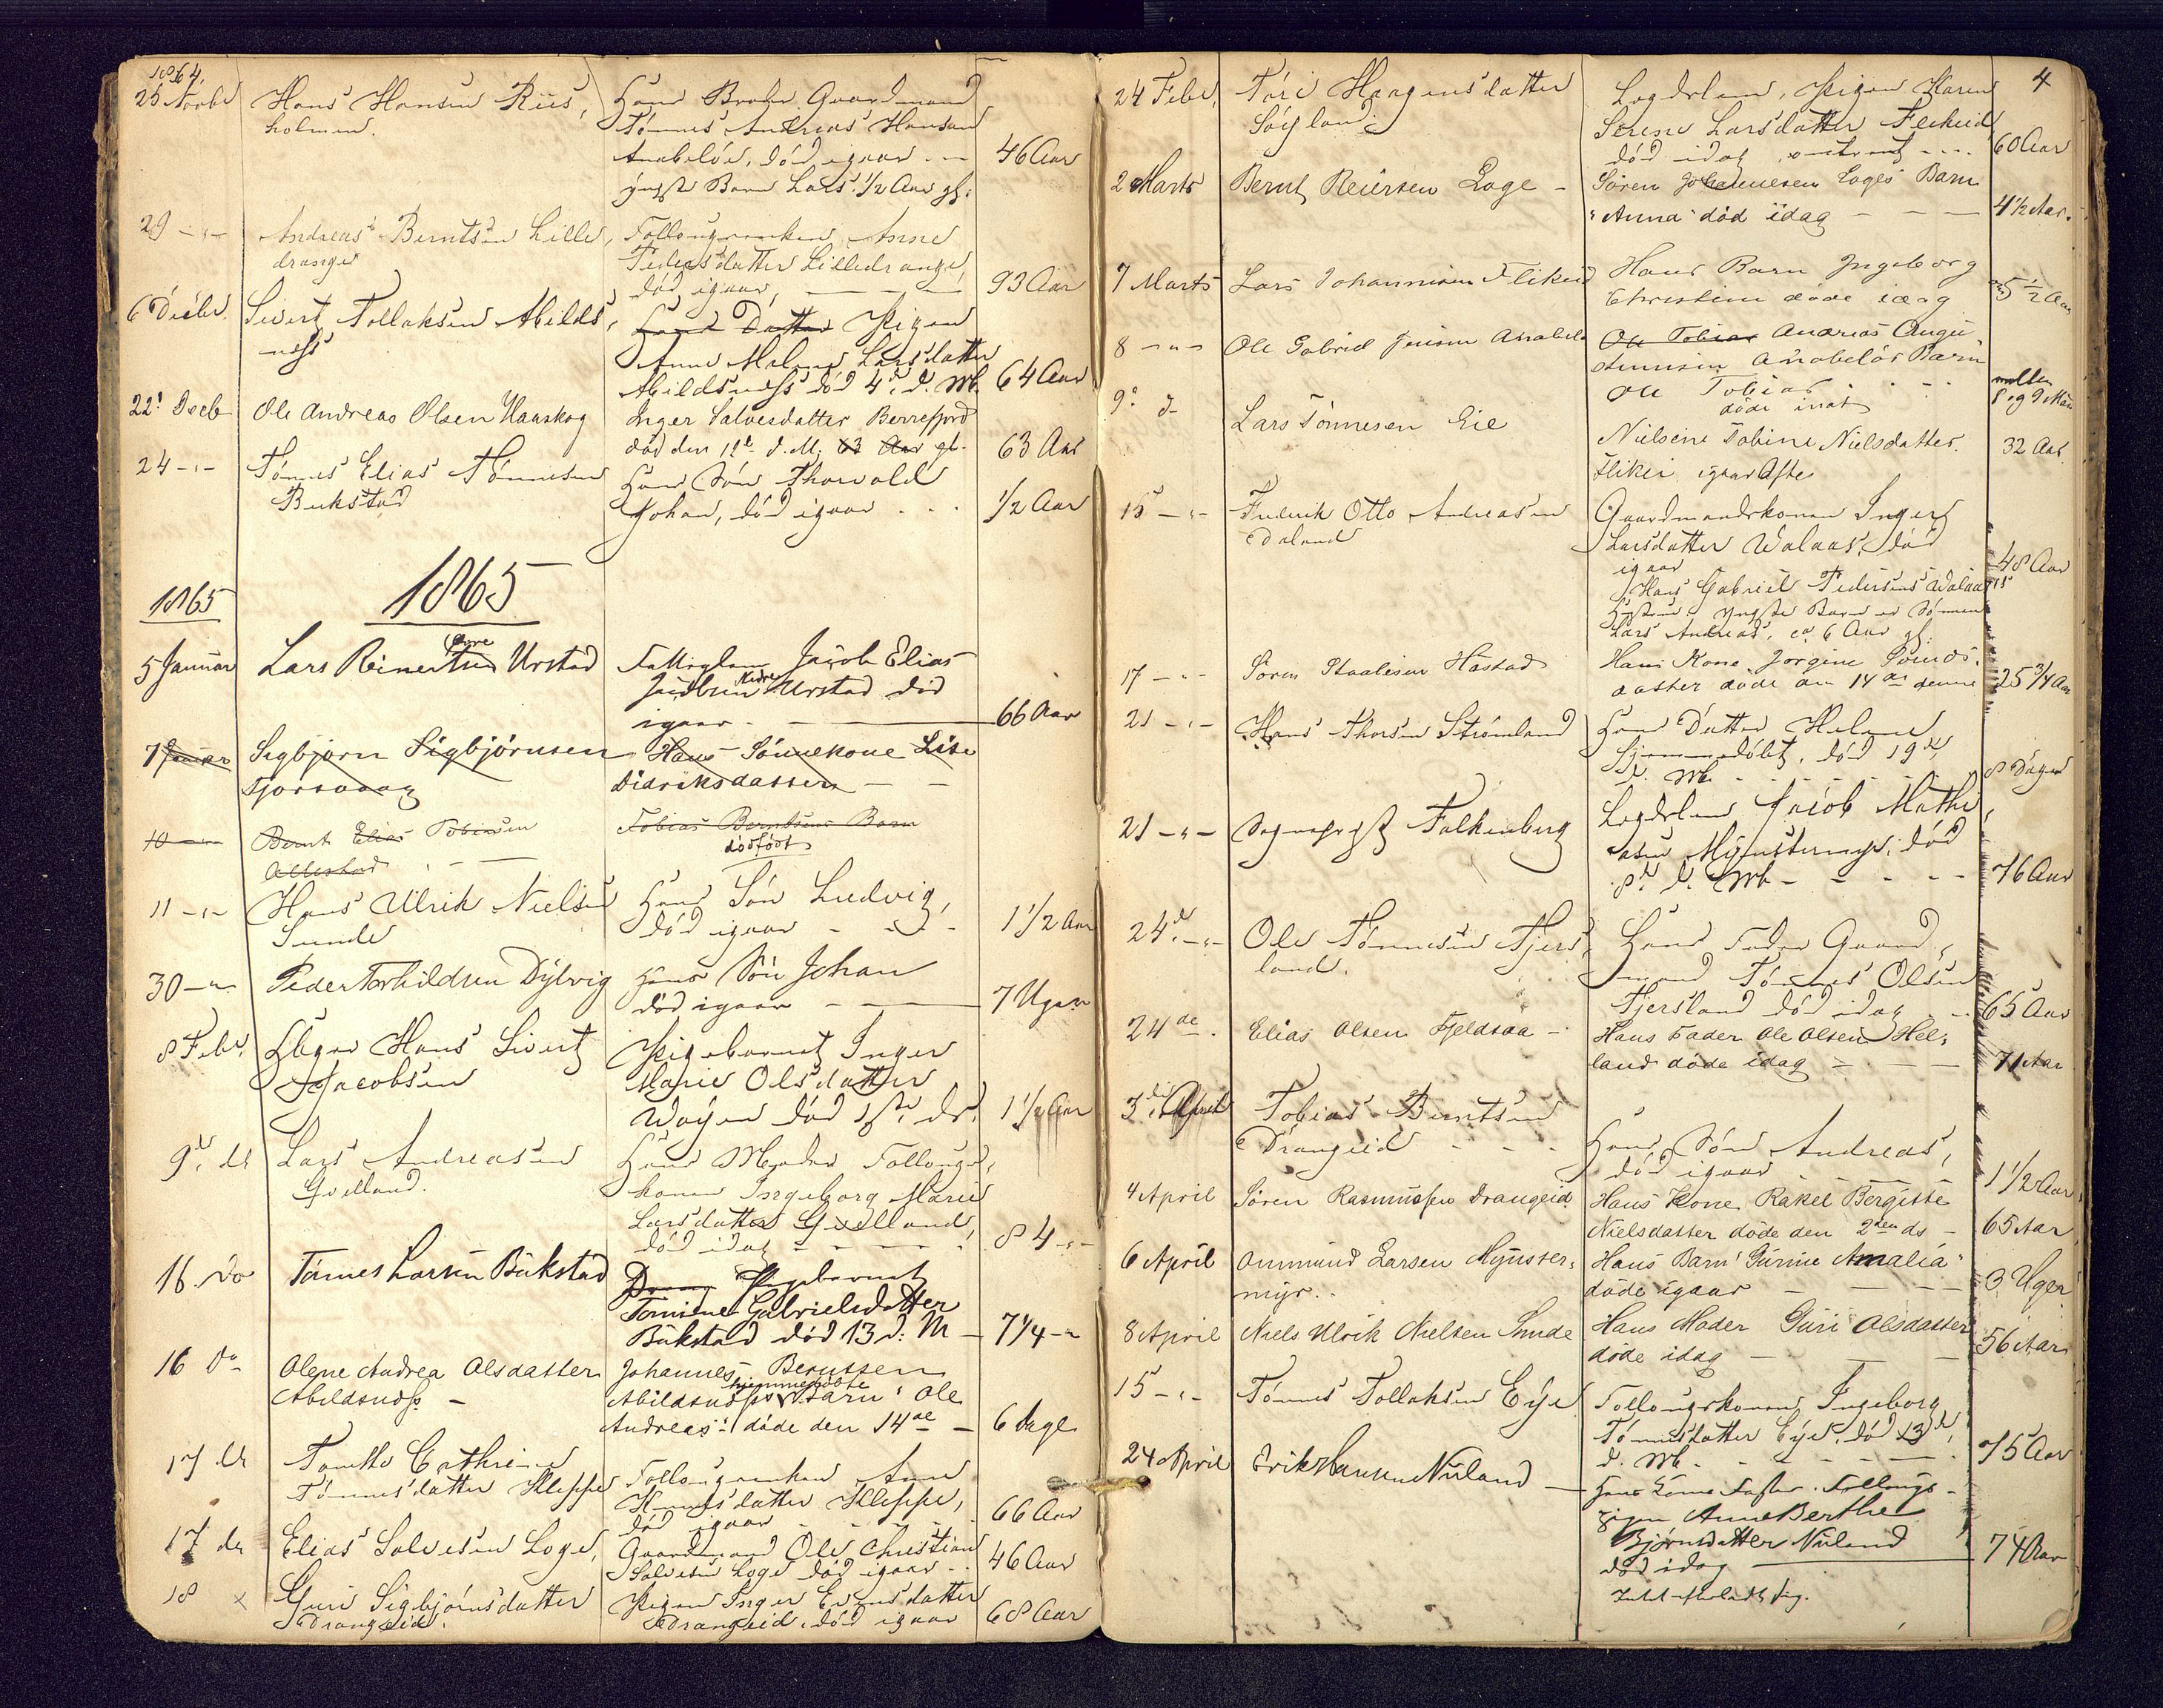 1864.
25 Novbr Hans Hansen Riis, Hans Broder Gaardmand
holmen. Tönnes Andreas Hansen
Anabelöe, död igaar. 46 Aar
yngste Barn Lars 1/2 Aar gl:
29 -"- Andreas Berntsen Lille, Follougsenken Anne
drange Pedersdatter Lilledrange,
död igaar, 93 Aar
6 Decbr. Sivert Tollaksen Abilds, Hans Datter Pigen
næss Anne Malene Larsdatter
Abildsnæss död 4de d. Mb. 64 Aar
22' Decb Ole Andreas Olsen Haaskog Inger Salvesdatter Berrefjord
död den 12te d. M. 63 Aar gl. 63 Aar
24 -"- Tönnes Elias Tönnesen Hans Sön Thorvald
Bukstad Johan, död igaar 1/2 Aar
1865
1865
5 Januar Lars Reinertsen Övre Urstad Fattiglem Jacob Elias
Jacobsen Nedre Urstad död
igaar - 66 Aar
7 Januar Sigbjörn Sigbjörnsen Hans Sönnekone Lise
Tjorsvaag Didriksdatter - -
10 -"- Bernt Elias Tobiasen Tobias Berntsens Barn
Allestad dödfödt
11 -"- Hans Ullrik Nielsen Hans Sön Ludvig,
Sunde död igaar - 1 1/2 Aar
30 -"- Peder Torkildsen Dylvig Hans Sön Johan
död igaar 7 Uger
8 Febr. Hans Sivert Pigebarnet Inger
Jacobsen Marie Olsdatter
Waagen död 1ste ds. 1 1/2 Aar
9de ds Lars Andreasen Hans Moder Follougs,
Gyelland. konen Ingeborg Marie
Larsdatter Gyelland,
död idag 84 -"-
16 Do Tönnes Larsen Bukstad Dreng Pigebarnet
Tomine Gabrielsdatter
Bukstad död 13 d: M - 7 1/4 -"-
16 Do Olene Andrea Olsdatter Johannes Berntsen
Abildsnæss - Abildsnæss hjemmedöbte Barn "Ole
Andreas" döde den 14de - 6 Dage
17 ds Tonette Cathrine Follougsenken Anne
Tönnesdatter Kleppe Knudsdatter Kleppe,
död igaar 66 Aar
17 ds Elias Salvesen Loge, Gaardmand Ole Christian
Salvesen Loge död igaar 46 Aar
18 x Guri Sigbjörnsdatter Pigen Inger Evensdatter
Drangeid. Drangeid, död igaar 68 Aar
4
24 Febr. Tori Haagensdatter Lægdslem, Pigen Karen
Söyland Serine Larsdatter Flikeid
död idag 60 Aar
2 Marts Bernt Reiersen Loge - Sören Johannesen Loges Barn
"Anna" död idag - - - 4 1/2 Aar.
7 Marts Lars Johannesen Flikeid Hans Barn Ingeborg
Christine döde idag 5 1/2 Aar
8 -"- Ole Gabriel Jensen Anabelö Ole Tobias Andreas Augu
stensen Anabelös Barn
Ole Tobias mellem
döde inat 8 og 9 Mdr
9de d- Lars Tönnesen Eie Nielsine Tobine Nielsdatter. 32 Aar
Flikei igaar Afte
15 -"- Frederik Otto Andreasen Gaardmandskonen Inger
Daland Larsdatter Walaas, död
igaar 48 Aar
Hans Gabriel Pedersens Walaas
Hustru yngste Barn er Sönnen
Lars Andreas, ca 6 Aar gl.
17 -"- Sören Staalesen Hastad Hans Kone Jorgine Svends-
datter döde den 14de denne 25 3/4 Aar
21 -"- Hans Thorsen Strömland Hans Datter Helene
Hjemmedöbt, död 19de
d. Mb. 8 Dage
21 -"- Sogneprest Falkenberg Lægdslem Jacob Mathi,
asen Mynstermyr, död
8de d. Mb - 76 Aar
24de -"- Ole Tönnesen Fjers, Hans Fader Gaard,
land. mand Tönnes Olsen
Fjersland död idag 65 Aar
24de Elias Olsen Fjeldsaa - Hans Fader Ole Olsen Hel,
land döde idag - - 71 Aar
3die April Tobias Berntsen
Drangeid Hans Sön Andreas,
död igaar 1 1/2 Aar
4 April Sören Rasmussen Drangeid Hans Kone Rakel Bergitte
Nielsdatter döde den 2den ds - 65 Aar
6 April Ommund Larsen Mynster, Hans Barn "Gurine Amalia"
myr. döde igaar - 3 Uger
8 April Niels Ulrik Nielsen Sunde Hans Moder Guri Olsdatter
döde idag - 56 Aar
15 -"- Tönnes Tollaksen Eye Follougskonen Ingeborg
Tönnesdatter Eye, död 13de
d. Mb. 75 Aar
24 April Erik Hansen Nuland Hans Kones Faster Follougs-
pigen Anne Berthe
Björnsdatter Nuland
död idag 74 Aar